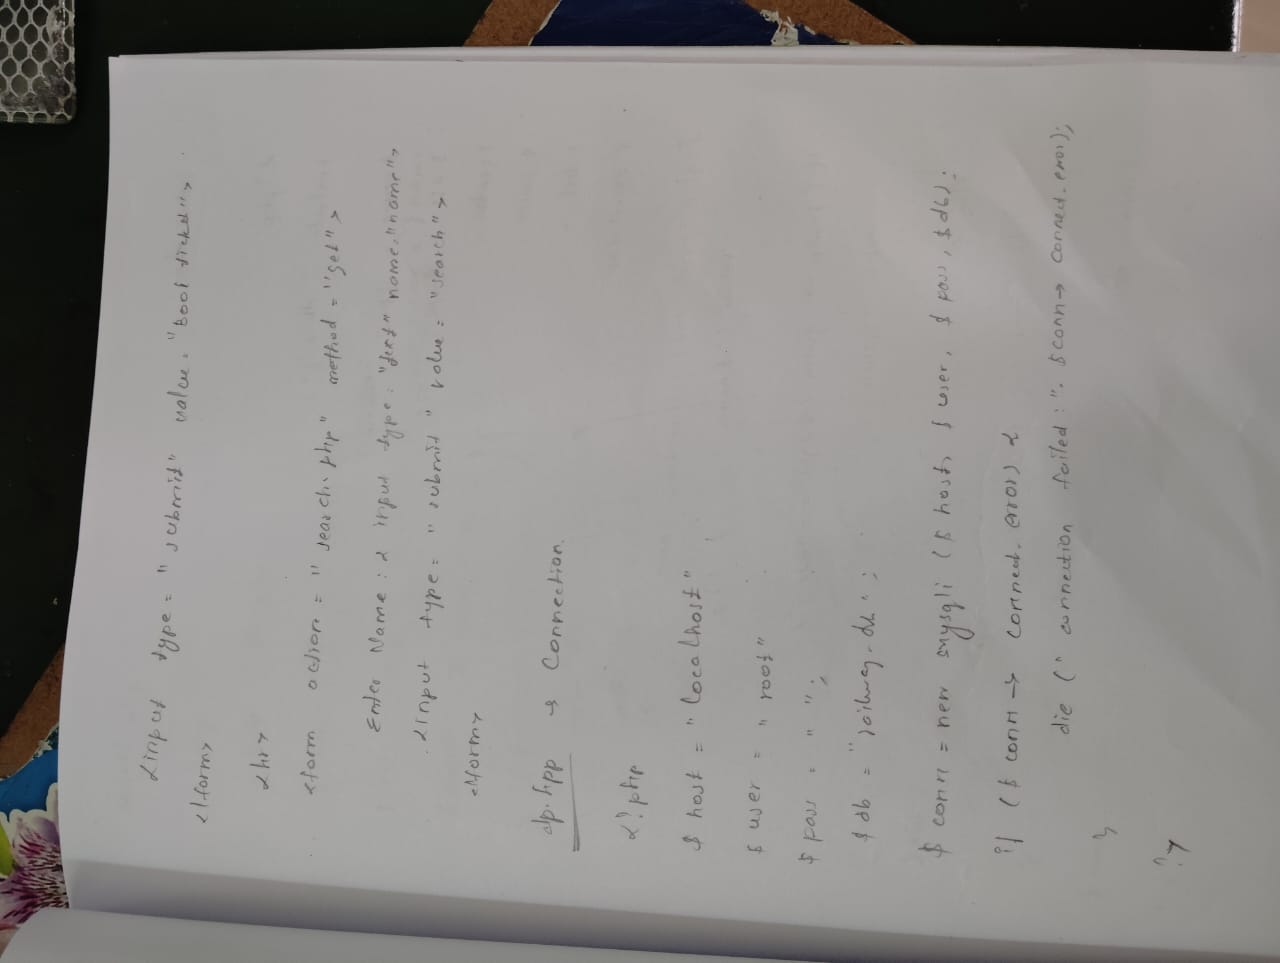 <input type = "submit" value = "Book ticket">
</form>
<hr>
<form action = "search.php" method = "get">
Enter Name : <input type = "text" name = "name">
<input type = "submit" value = "search">
</form>
dp.hpp → Connection.
<?php
$ host = "localhost"
$ user = "root"
$ pass = " ";
$ db = "railway_db";
$ conn = new mysqli ($ host, $ user, $ pass, $ db);
if ($ conn → connect_error) {
die (" connection failed : ". $ conn → connect_error);
}
?>